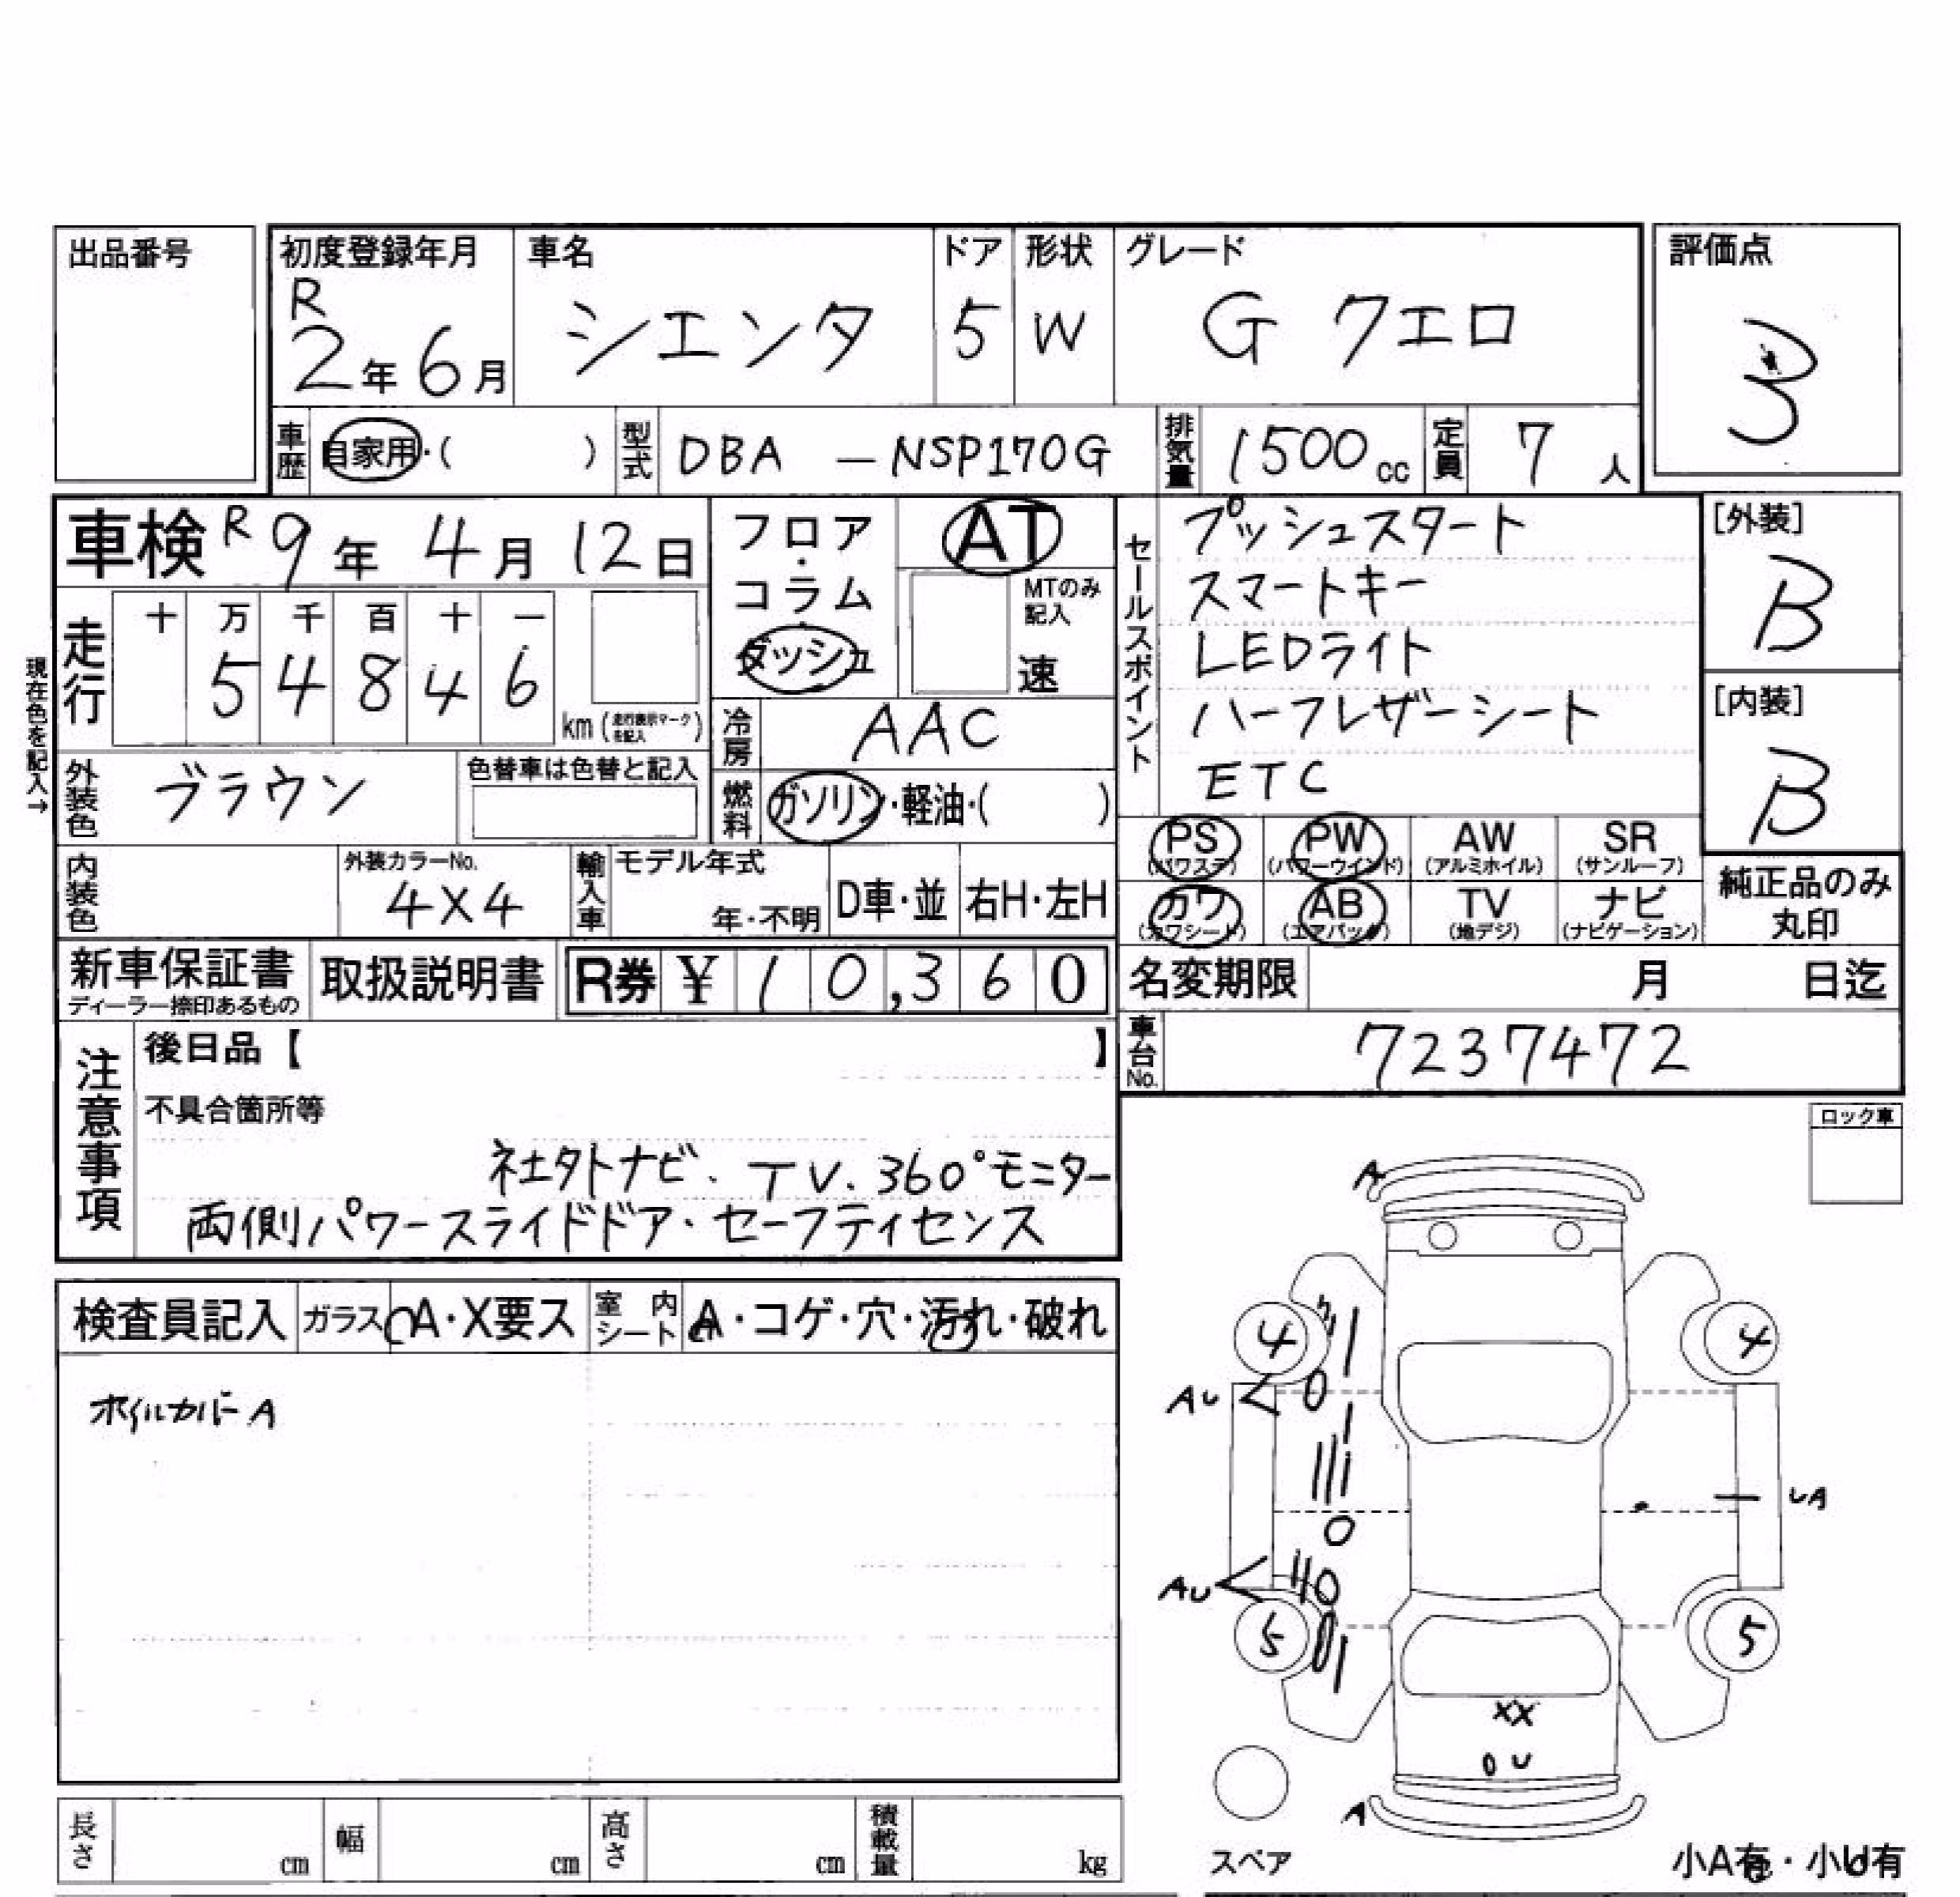 出品番号
初度登録年月 車名 ドア 形状 グレード 評価点
R
2年6月 シエンタ 5 W G クエロ 3
車歴 自家用・( ) 型式 DBA - NSP170G 排気量 1500cc 定員 7人
車検 R9年4月12日
フロア・コラム・ダッシュ
AT
MTのみ記入
速
セールスポイント
プッシュスタート
スマートキー
LEDライト
ハーフレザーシート
ETC
[外装]
B
[内装]
B
現在色を記入→
走行 十 万 千 百 十 一
5 4 8 4 6
km (走行表示マークを記入)
冷房 AAC
外装色 ブラウン 色替車は色替と記入
燃料 ガソリン・軽油・( )
PS (パワステ) PW (パワーウインド) AW (アルミホイル) SR (サンルーフ)
カワ (カワシート) AB (エアバック) TV (地デジ) ナビ (ナビゲーション)
純正品のみ
丸印
内装色 外装カラーNo. 4X4 輸入車 モデル年式 年・不明 D車・並 右H・左H
新車保証書 ディーラー捺印あるもの 取扱説明書 R券 ¥ 10,360
名変期限 月 日迄
車台No. 7237472
注意事項
後日品【 】
不具合箇所等
社外ナビ・TV・360°モニター
両側パワースライドドア・セーフティセンス
ロック車
検査員記入 ガラス A・X要ス 室内シート A・コゲ・穴・汚れ・破れ
ホイルカバーA
A
4 4
AU
UA
AU
5 5
XX
U
A
スペア
小A有・小U有
長さ cm 幅 cm 高さ cm 積載量 kg